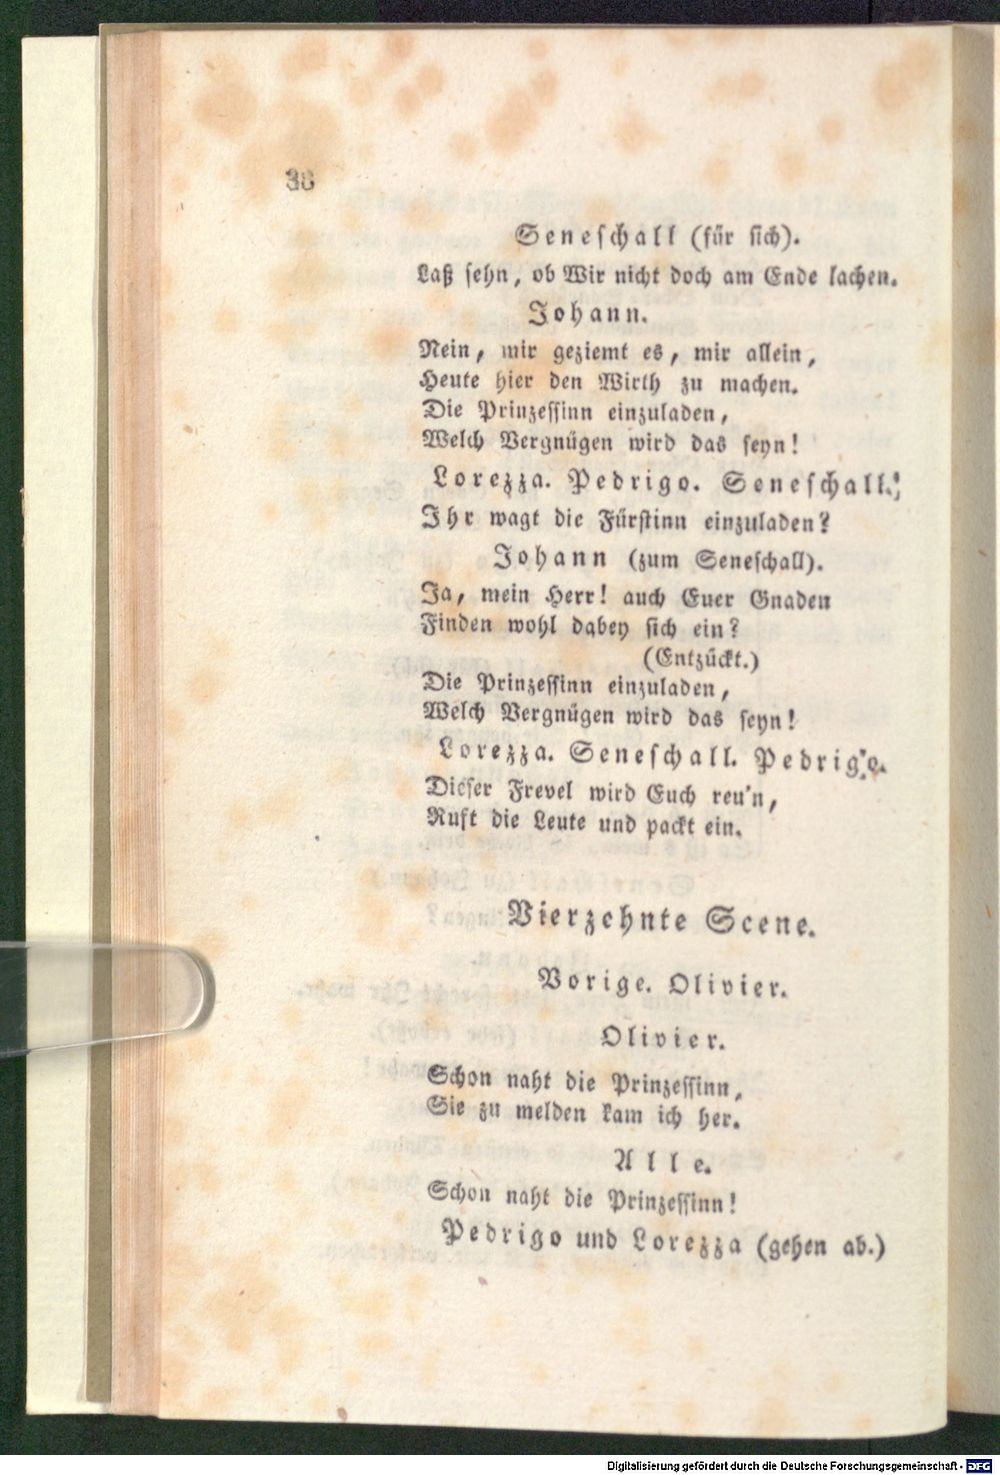 36
Seneschall (für sich).
Laß sehn, ob Wir nicht doch am Ende lachen.
Johann.
Nein, mir geziemt es, mir allein,
Heute hier den Wirth zu machen.
Die Prinzessinn einzuladen,
Welch Vergnügen wird das seyn!
Lorezza. Pedrigo. Seneschall.
Ihr wagt die Fürstinn einzuladen?
Johann (zum Seneschall).
Ja, mein Herr! auch Euer Gnaden
Finden wohl dabey sich ein?
(Entzückt.)
Die Prinzessinn einzuladen,
Welch Vergnügen wird das seyn!
Lorezza. Seneschall. Pedrigo.
Dieser Frevel wird Euch reu'n,
Ruft die Leute und packt ein.
Vierzehnte Scene.
Vorige. Olivier.
Olivier.
Schon naht die Prinzessinn,
Sie zu melden kam ich her.
Alle.
Schon naht die Prinzessinn!
Pedrigo und Lorezza (gehen ab.)
Digitalisierung gefördert durch die Deutsche Forschungsgemeinschaft - DFG